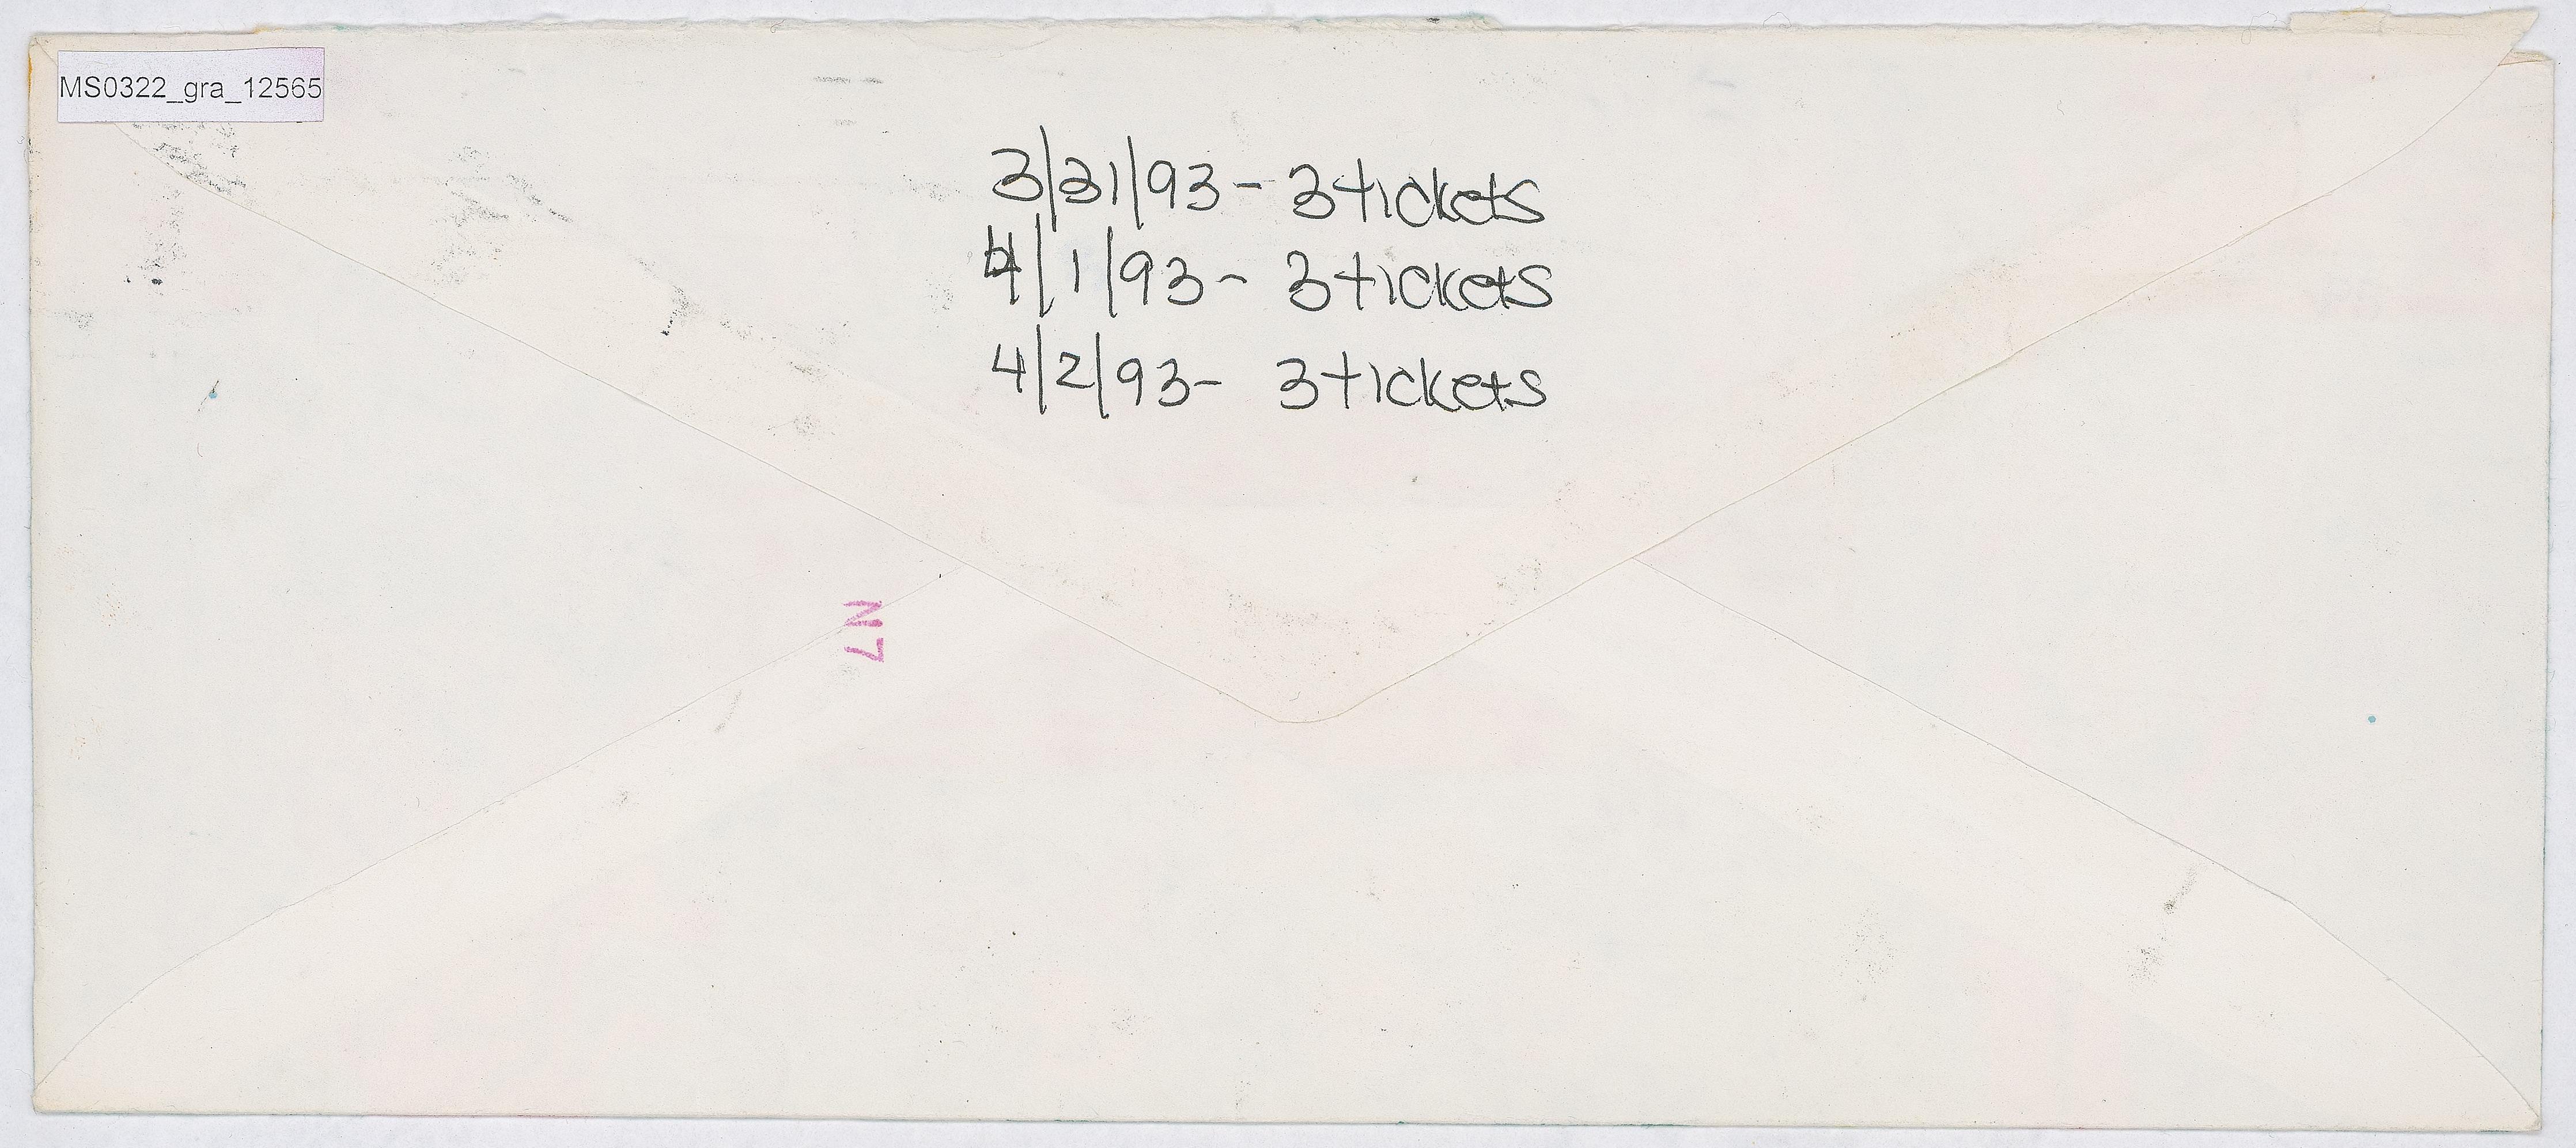 MS0322_gra_12565
3/31/93 - 3 tickets
4/1/93 - 3 tickets
4/2/93 - 3 tickets